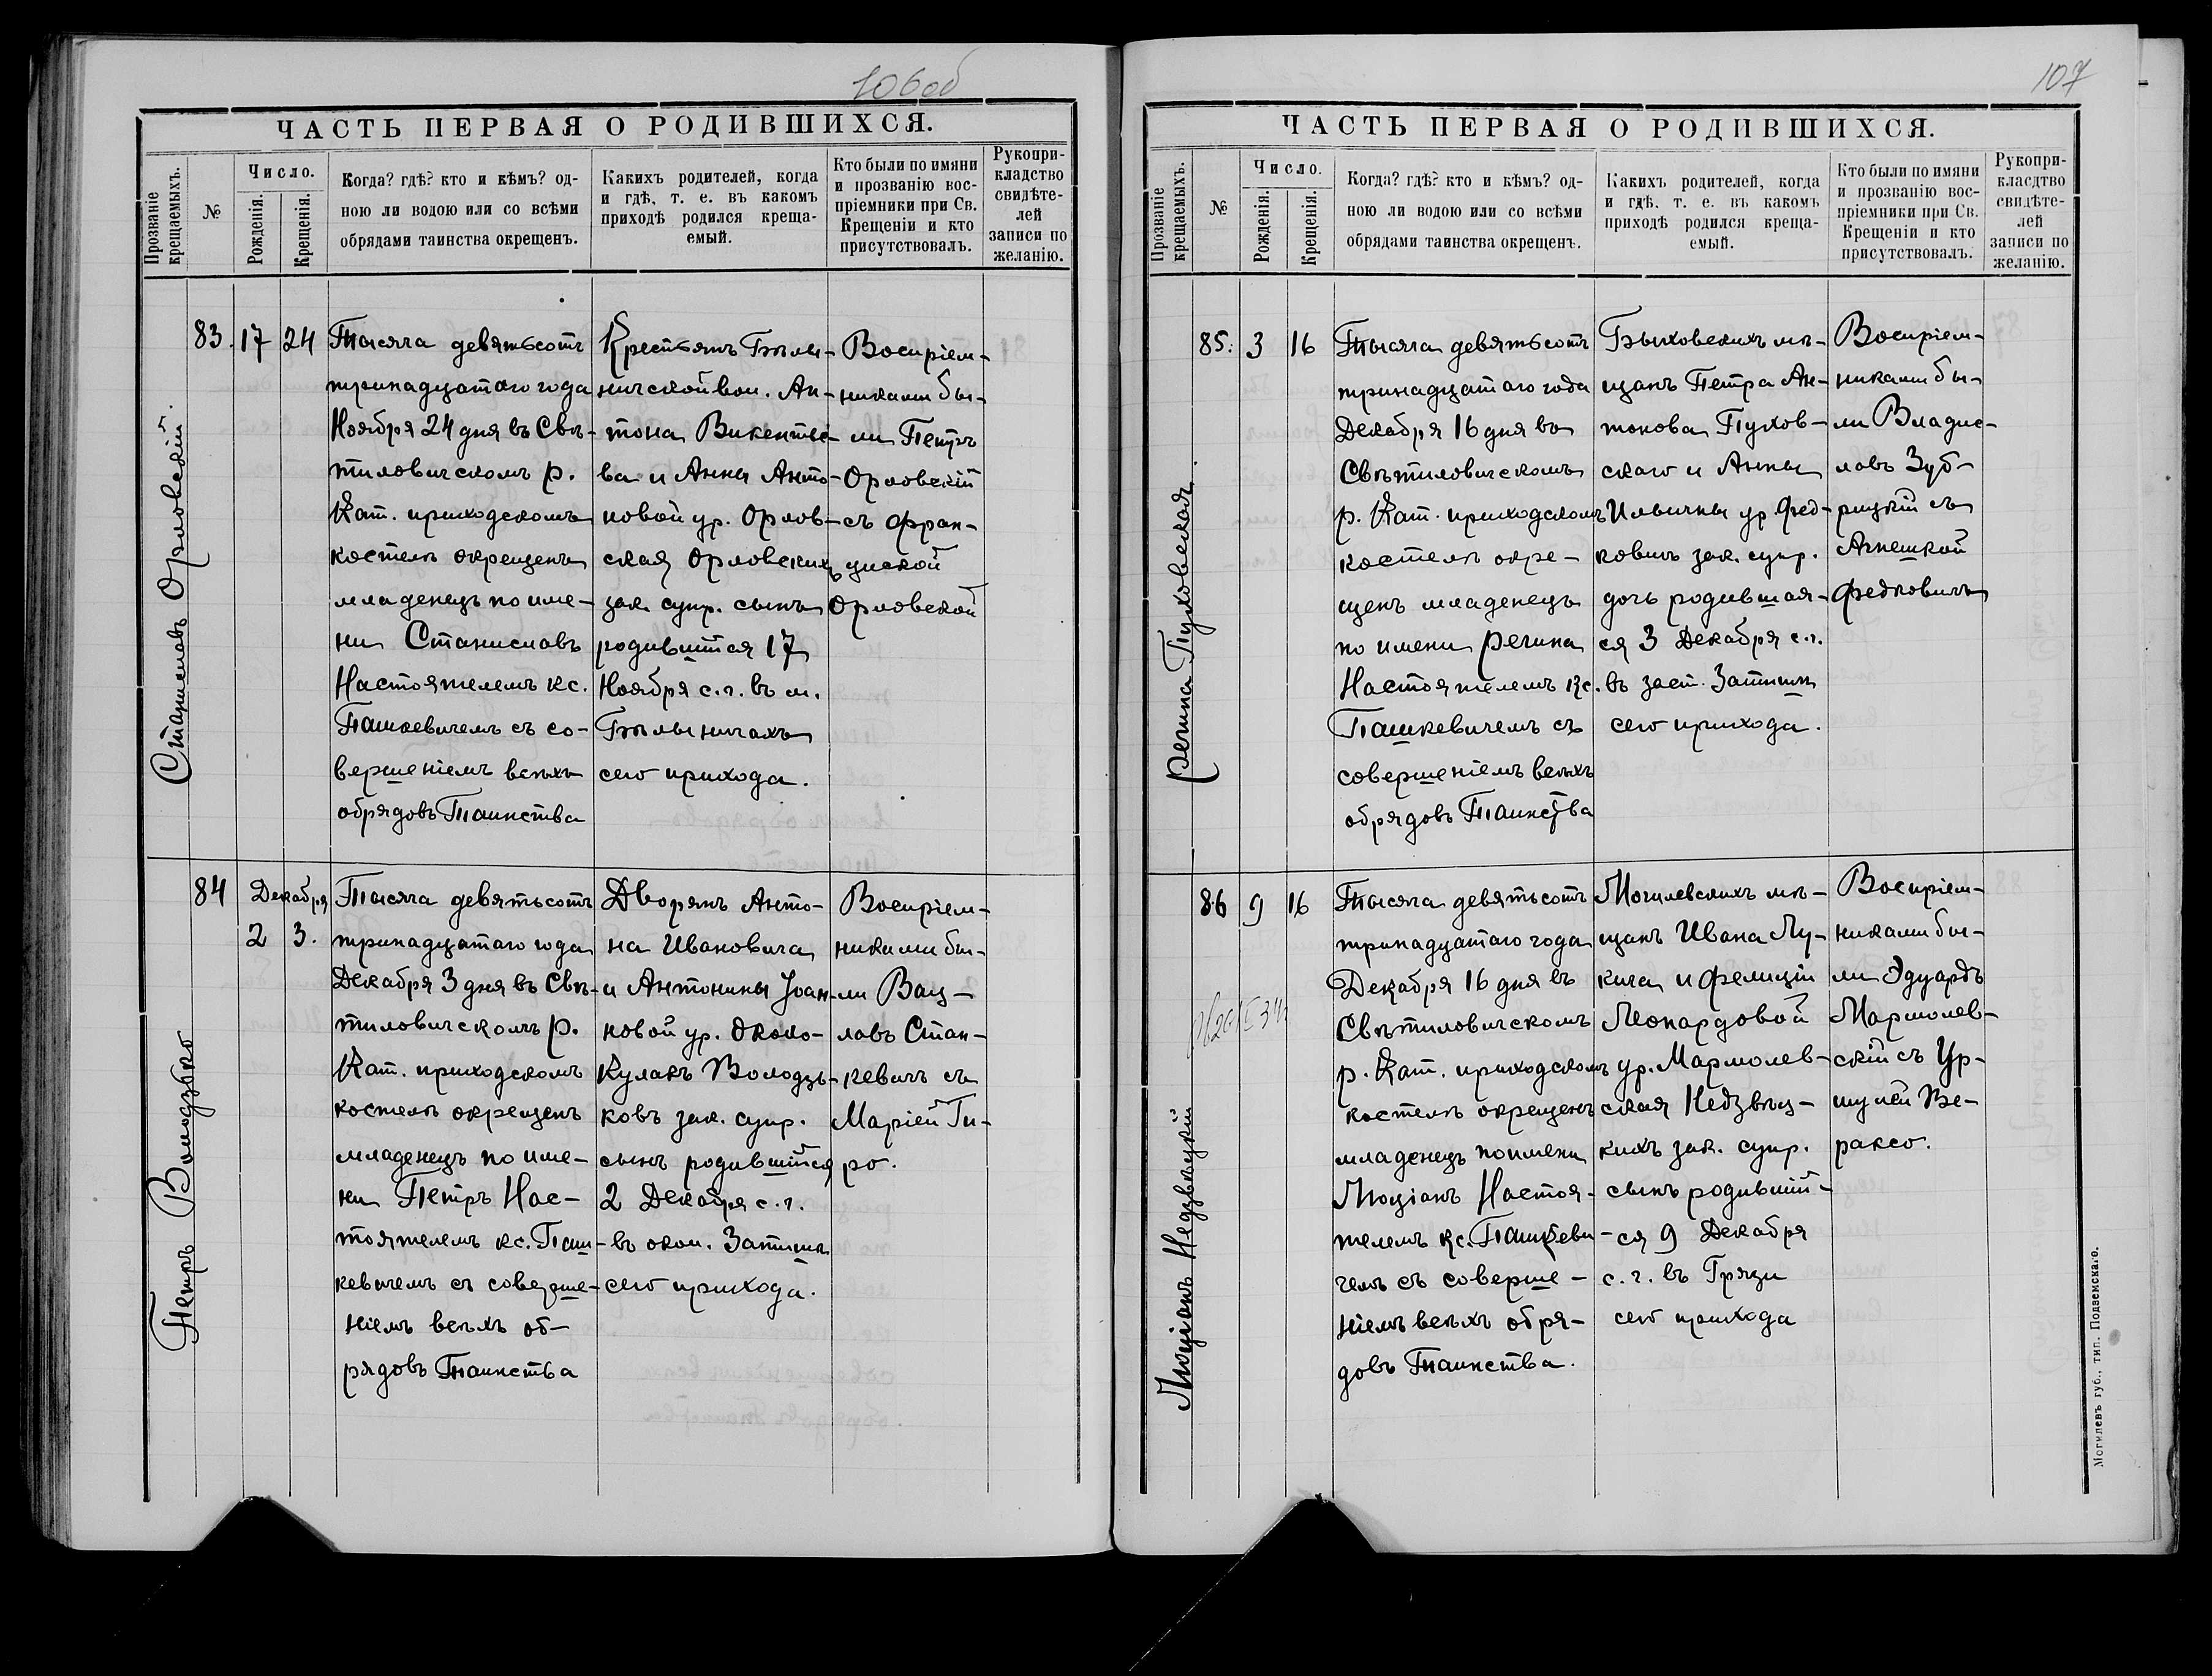 106об
ЧАСТЬ ПЕРВАЯ О РОДИВШИХСЯ.
Прозваніе крещаемыхъ.
№
Число.
Рожденія.
Крещенія.
Когда? гдѣ? кто и кѣмъ? од-
ною ли водою или со всѣми
обрядами таинства окрещенъ.
Какихъ родителей, когда
и гдѣ, т. е. въ какомъ
приходѣ родился креща-
емый.
Кто были по имяни
и прозванію вос-
пріемники при Св.
Крещеніи и кто
присутствовалъ.
Рукопри-
кладство
свидѣте-
лей
записи по
желанію.
Станиславъ Орловскій.
83.
17
24
Тысяча девятьсотъ
тринадцатаго года
Ноября 24 дня въ Свѣ-
тиловичскомъ р.
Кат. приходскомъ
костелѣ окрещенъ
младенецъ по име-
ни Станиславъ
Настоятелемъ кс.
Пашкевичемъ съ со-
вершеніемъ всѣхъ
обрядовъ Таинства
Крестьянъ Бѣлы-
ничской вол. Ан-
тона Викентіе-
ва и Анны Анто-
новой ур. Орлов-
ская Орловскихъ
зак. супр. сынъ
родившійся 17
Ноября с. г. въ м.
Бѣлыничахъ
сего прихода.
Воспріем-
никами бы-
ли Петръ
Орловскій
съ Фран-
циской
Орловской
Петръ Володзько
84
Декабря
2
3.
Тысяча девятьсотъ
тринадцатаго года
Декабря 3 дня въ Свѣ-
тиловичскомъ р.
Кат. приходскомъ
костелѣ окрещенъ
младенецъ по име-
ни Петръ Нас-
тоятелемъ кс. Паш-
кевичемъ съ соверше-
ніемъ всѣхъ об-
рядовъ Таинства
Дворянъ Анто-
на Ивановича
и Антонины Іоан-
новой ур. Около-
Кулакъ Володзь-
ковъ зак. супр.
сынъ родившійся
2 Декабря с. г.
въ окол. Затишье
сего прихода.
Воспріем-
никами бы-
ли Вац-
лавъ Стан-
кевичъ съ
Маріей Ги-
ро.
107
ЧАСТЬ ПЕРВАЯ О РОДИВШИХСЯ.
Прозваніе крещаемыхъ.
№
Число.
Рожденія.
Крещенія.
Когда? гдѣ? кто и кѣмъ? од-
ною ли водою или со всѣми
обрядами таинства окрещенъ.
Какихъ родителей, когда
и гдѣ, т. е. въ какомъ
приходѣ родился креща-
емый.
Кто были по имяни
и прозванію вос-
пріемники при Св.
Крещеніи и кто
присутствовалъ.
Рукопри-
класдтво
свидѣте-
лей
записи по
желанію.
Регина Пуховская.
85.
3
16
Тысяча девятьсотъ
тринадцатаго года
Декабря 16 дня въ
Свѣтиловичскомъ
р. Кат. приходскомъ
костелѣ окре-
щенъ младенецъ
по имени Регина
Настоятелемъ кс.
Пашкевичемъ съ
совершеніемъ всѣхъ
обрядовъ Таинства
Быховскихъ мѣ-
щанъ Петра Ан-
тонова Пухов-
скаго и Анны
Ильичны ур Фед-
ковичъ зак. супр.
дочь родившая-
ся 3 Декабря с. г.
въ заст. Затишье
сего прихода.
Воспріем-
никами бы-
ли Владис-
лавъ Зуб-
рицкій съ
Агнешкой
Федковичъ
Люціанъ Недзвѣцкій
86
9
16
Тысяча девятьсотъ
тринадцатаго года
Декабря 16 дня въ
Свѣтиловичскомъ
р. Кат. приходскомъ
костелѣ окрещенъ
младенецъ по имени
Люціанъ Настоя-
телемъ кс. Пашкеви-
чемъ съ соверше-
ніемъ всѣхъ обря-
довъ Таинства.
Могилевскихъ мѣ-
щанъ Ивана Лу-
кича и Фелиціи
Леонардовой
ур. Мармолев-
ская Недзвѣц-
кихъ зак. супр.
сынъ родившій-
ся 9 Декабря
с. г. въ Грязи
сего прихода
Воспріем-
никами бы-
ли Эдуардъ
Мармолев-
скій съ Ур-
шулей Ве-
раксо.
Могилевъ губ., тип. Подземскаго.